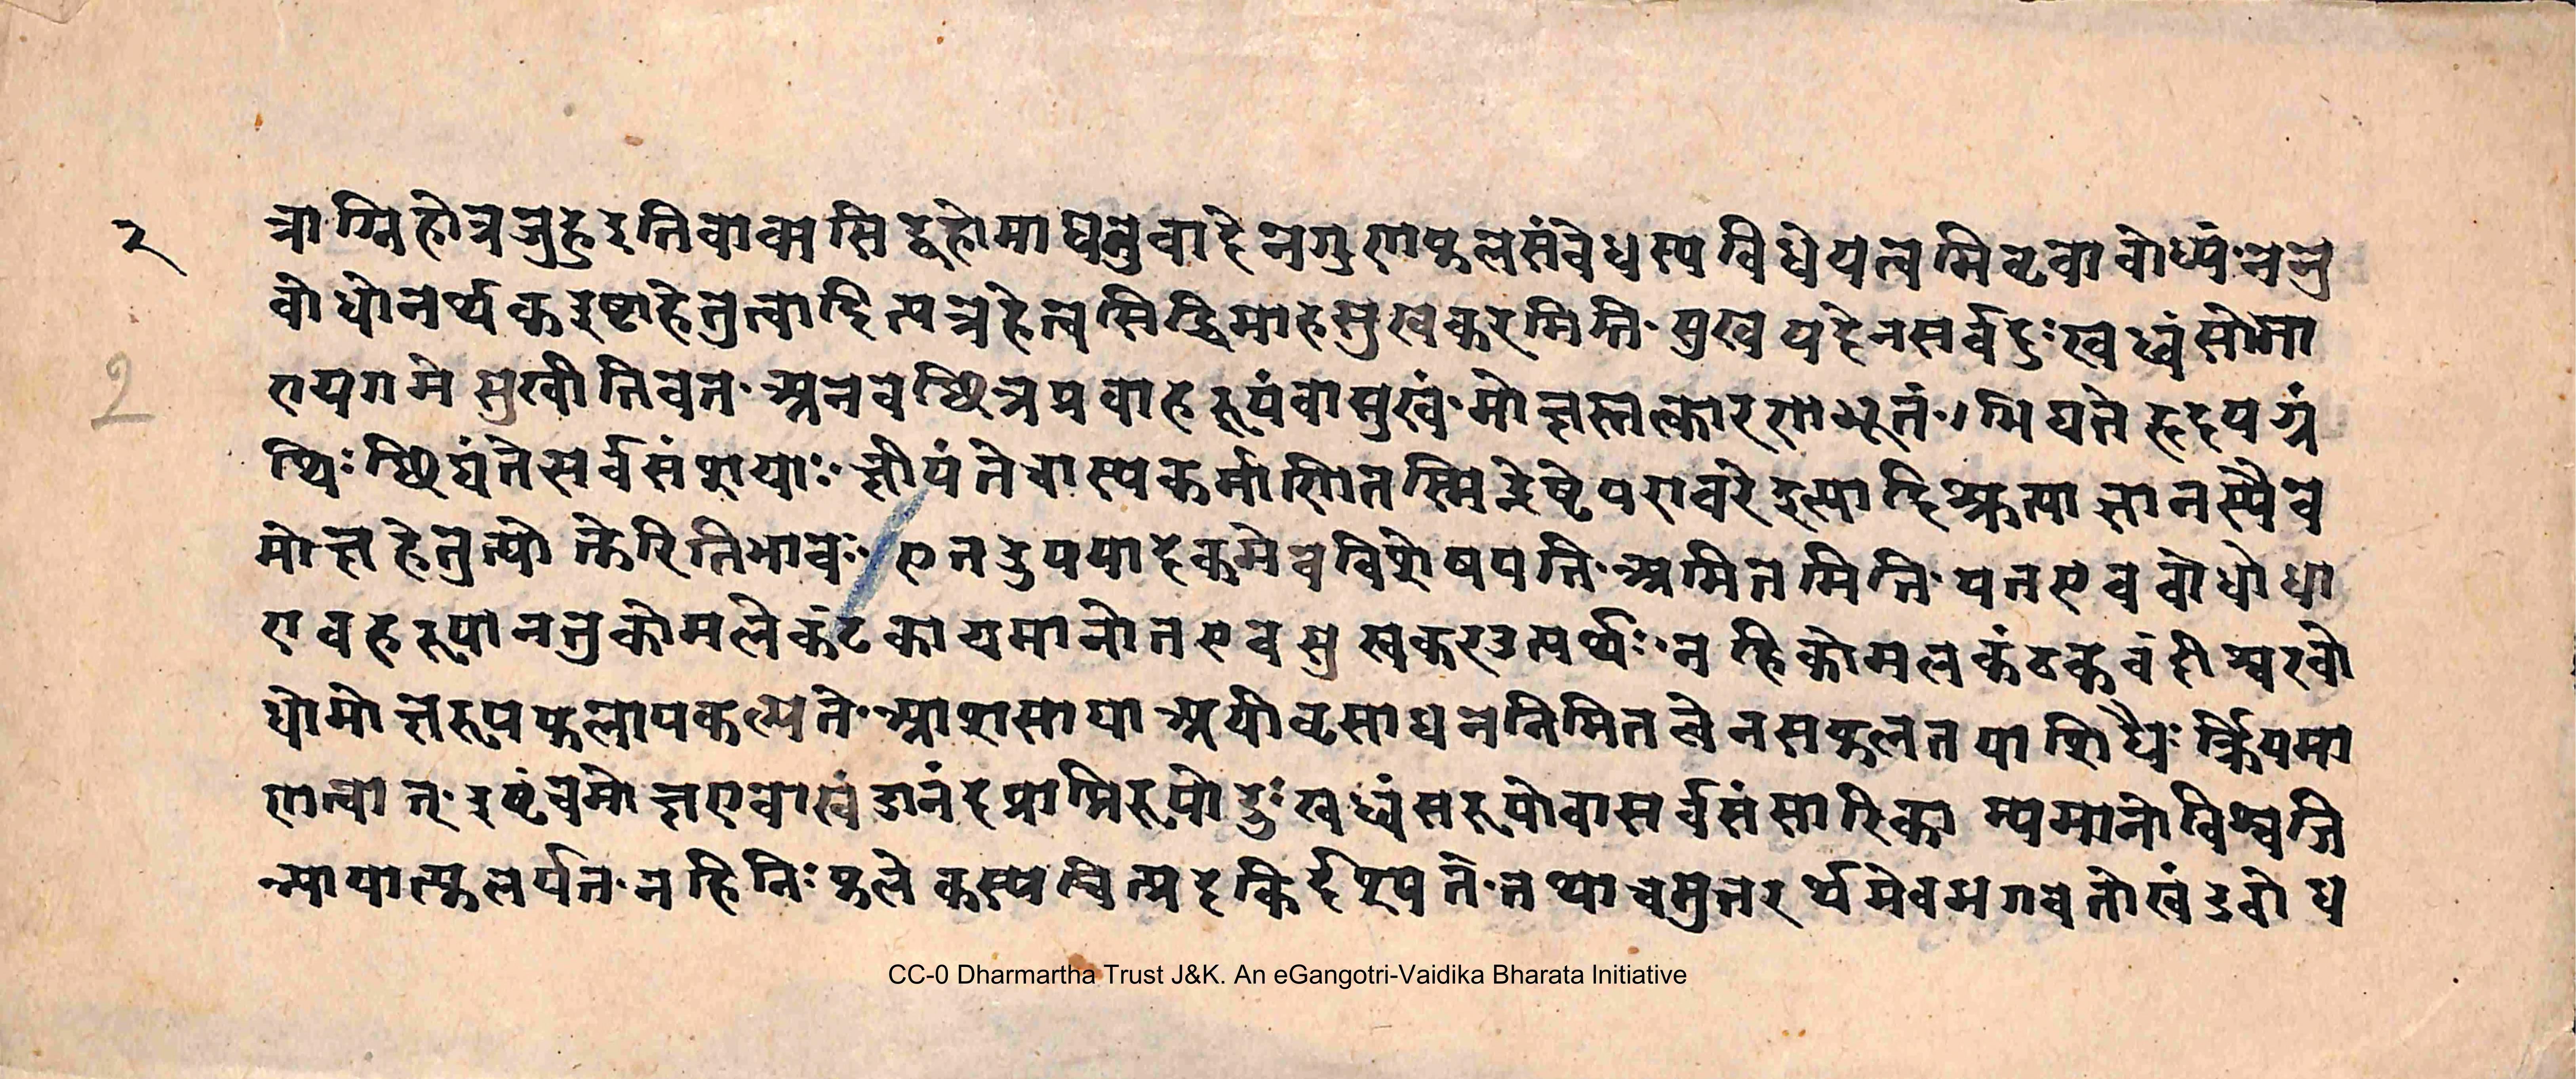 २
2
त्राग्निहोत्रजुहुइतिवाक्यसिद्धहोमाद्यनुवादेनगुणफलसंबेधस्यविधेयत्वमिष्टवाबोध्यं॰ननु
बोधोनर्थकइष्टाहेतुत्वादित्यत्रहेत्वसिद्धिमाहसुखकरमिति॰सुखपदेनसर्वदुःखध्वंसोभा
रापगमेसुखीतिवत्॰अनवछिन्नप्रवाहरूपंवासुखं॰मोक्षस्तत्कारणाभूतं॰।भिद्यतेहृदयग्रं
थिः छिद्यंतेसर्वसंशयाः॰क्षीयंतेचास्यकर्माणितस्मिन्दृष्टेपरावरेइत्यादिश्रुत्याज्ञानस्यैव
मोक्षहेतुत्योक्तेरितिभावः॰एतदुपपादकमेवविशेषयति॰अमितमिति॰यतएवबोधोधा
रावहरूपाननुकोमलेकंटकायमानोतएवसुखकरइत्यर्थः॰नहिकोमलकंटकवंहीश्वरबो
धोमोक्षेरूपफलापकल्पते॰आशसायाअपीष्टसाधननिमितत्वेनसफलतयाशिष्टैः क्रियमा
णत्वात्॰इष्टंचमोक्षएवाखंडानंदप्राप्तिरूपोदुःखध्वंसरूपोवासर्वसंसारिकाम्यमानोविश्वजि
न्न्यायात्फलर्पत॰नहिनिःफलेकस्यचित्प्रदकिर्दृश्यते॰तथाचमुत्तरर्थमेवभगवतोखंडबोध
CC-0 Dharmartha Trust J&K. An eGangotri-Vaidika Bharata Initiative